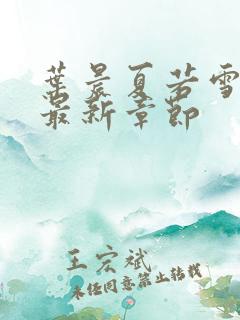 葉晨夏若雪
最新章節
王宏斌
未经同意禁止转载